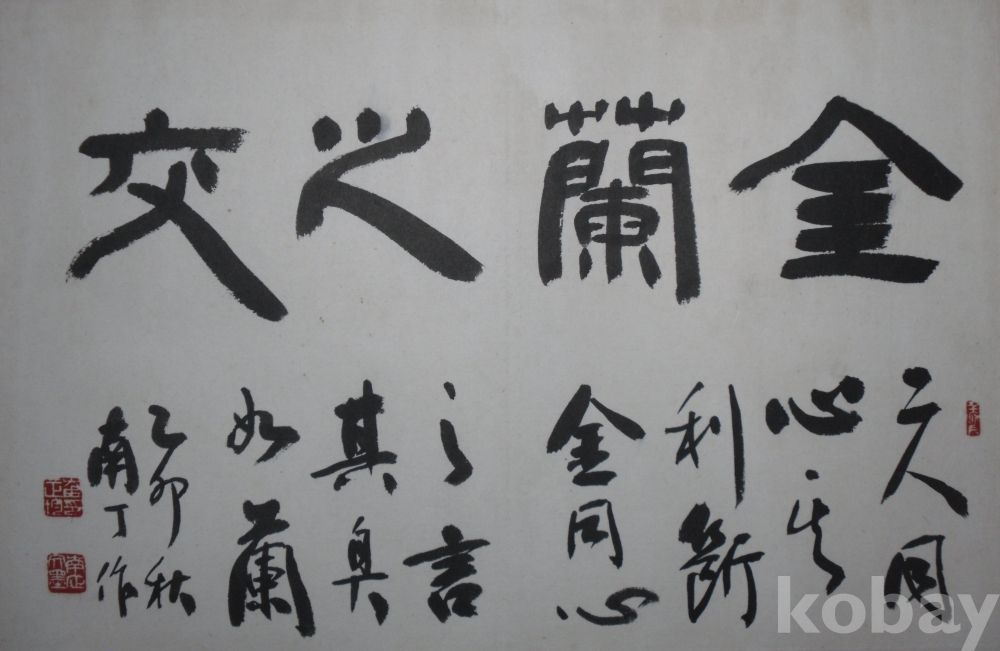 金蘭之交
二人同
心其
利斷
金同心
之言
其臭
如蘭
乙卯秋
南丁作
kobay